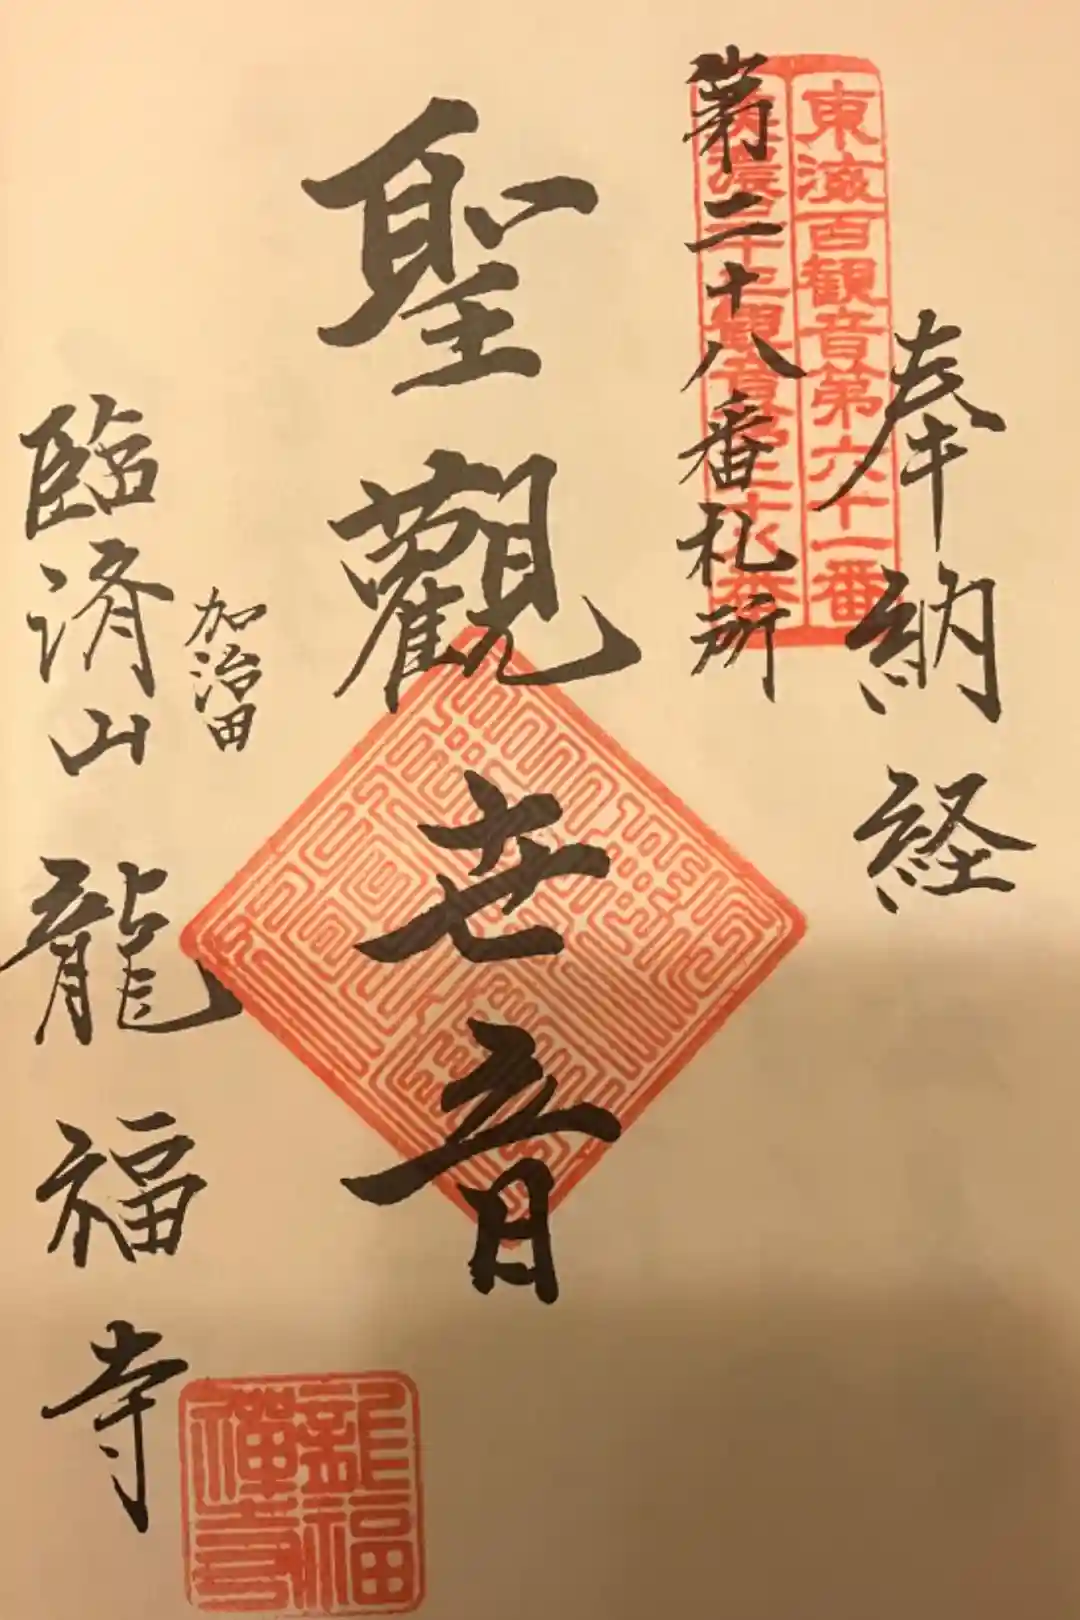 奉納経
東海百観音第六十一番
美濃三十三観音第二十八番
第二十八番札所
聖觀世音
加治田
臨済山龍福寺
龍福
禅寺